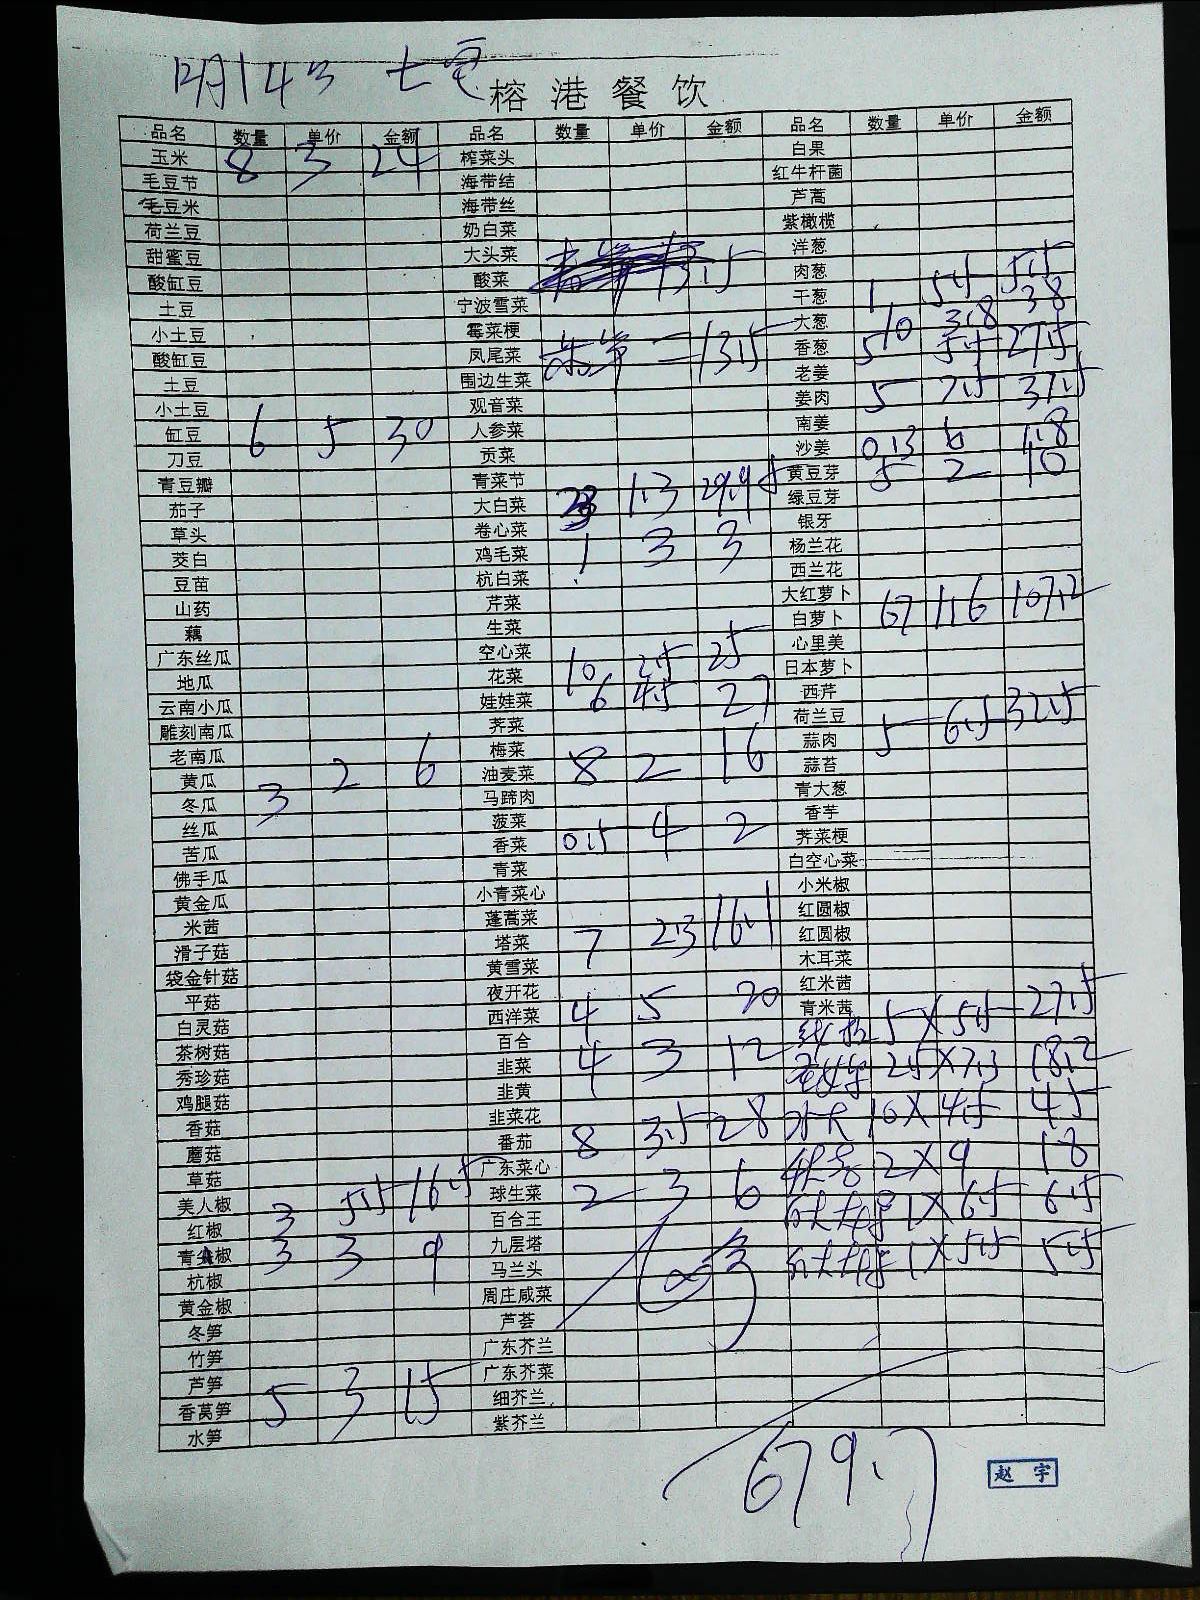 12月14号 七宝
榕港餐饮
品名 数量 单价 金额 品名 数量 单价 金额 品名 数量 单价 金额
玉米 8 3 24 榨菜头 白果
毛豆节 海带结 红牛杆菌
毛豆米 海带丝 芦蒿
荷兰豆 奶白菜 紫橄榄
甜蜜豆 大头菜 洋葱
酸缸豆 酸菜 肉葱
土豆 宁波雪菜 干葱 1 5.5 5.5
小土豆 霉菜梗 大葱 10 3.8 38
酸缸豆 凤尾菜 13.5 香葱 5 5.5 27.5
土豆 围边生菜 老姜
小土豆 观音菜 姜肉 5 7.5 37.5
缸豆 6 5 30 人参菜 南姜
刀豆 贡菜 沙姜 0.13 6 1.8
青豆瓣 青菜节 黄豆芽 5 2 10
茄子 大白菜 23 1.3 29.9 绿豆芽
草头 卷心菜 银牙
茭白 鸡毛菜 1 3 3 杨兰花
豆苗 杭白菜 西兰花
山药 芹菜 大红萝卜
藕 生菜 白萝卜 67 1.6 107.2
广东丝瓜 空心菜 心里美
地瓜 花菜 10 2.5 25 日本萝卜
云南小瓜 娃娃菜 6 4.5 27 西芹
雕刻南瓜 荠菜 荷兰豆
老南瓜 梅菜 蒜肉 5 6.5 32.5
黄瓜 2 6 油麦菜 8 2 16 蒜苔
冬瓜 3 马蹄肉 青大葱
丝瓜 菠菜 香芋
苦瓜 香菜 0.5 4 2 荠菜梗
佛手瓜 青菜 白空心菜
黄金瓜 小青菜心 小米椒
米茜 蓬蒿菜 红圆椒
滑子菇 塔菜 7 2.3 16.1 红圆椒
袋金针菇 黄雪菜 木耳菜
平菇 夜开花 红米茜
白灵菇 西洋菜 4 5 20 青米茜
茶树菇 百合 5×5.5 27.5
秀珍菇 韭菜 4 3 12 2.5×7.3 18.2
鸡腿菇 韭黄
香菇 韭菜花 10×4.5 45
蘑菇 番茄 8 3.5 28
草菇 广东菜心 2×9 18
美人椒 3 5.5 16.5 球生菜 2 3 6
红椒 百合王 1×6.5 6.5
青尖椒 3 3 9 九层塔
杭椒 马兰头 1×5.5 5.5
黄金椒 周庄咸菜
冬笋 芦荟
竹笋 广东芥兰
芦笋 广东芥菜
香莴笋 5 3 15 细芥兰
水笋 紫芥兰
679.7
赵宇